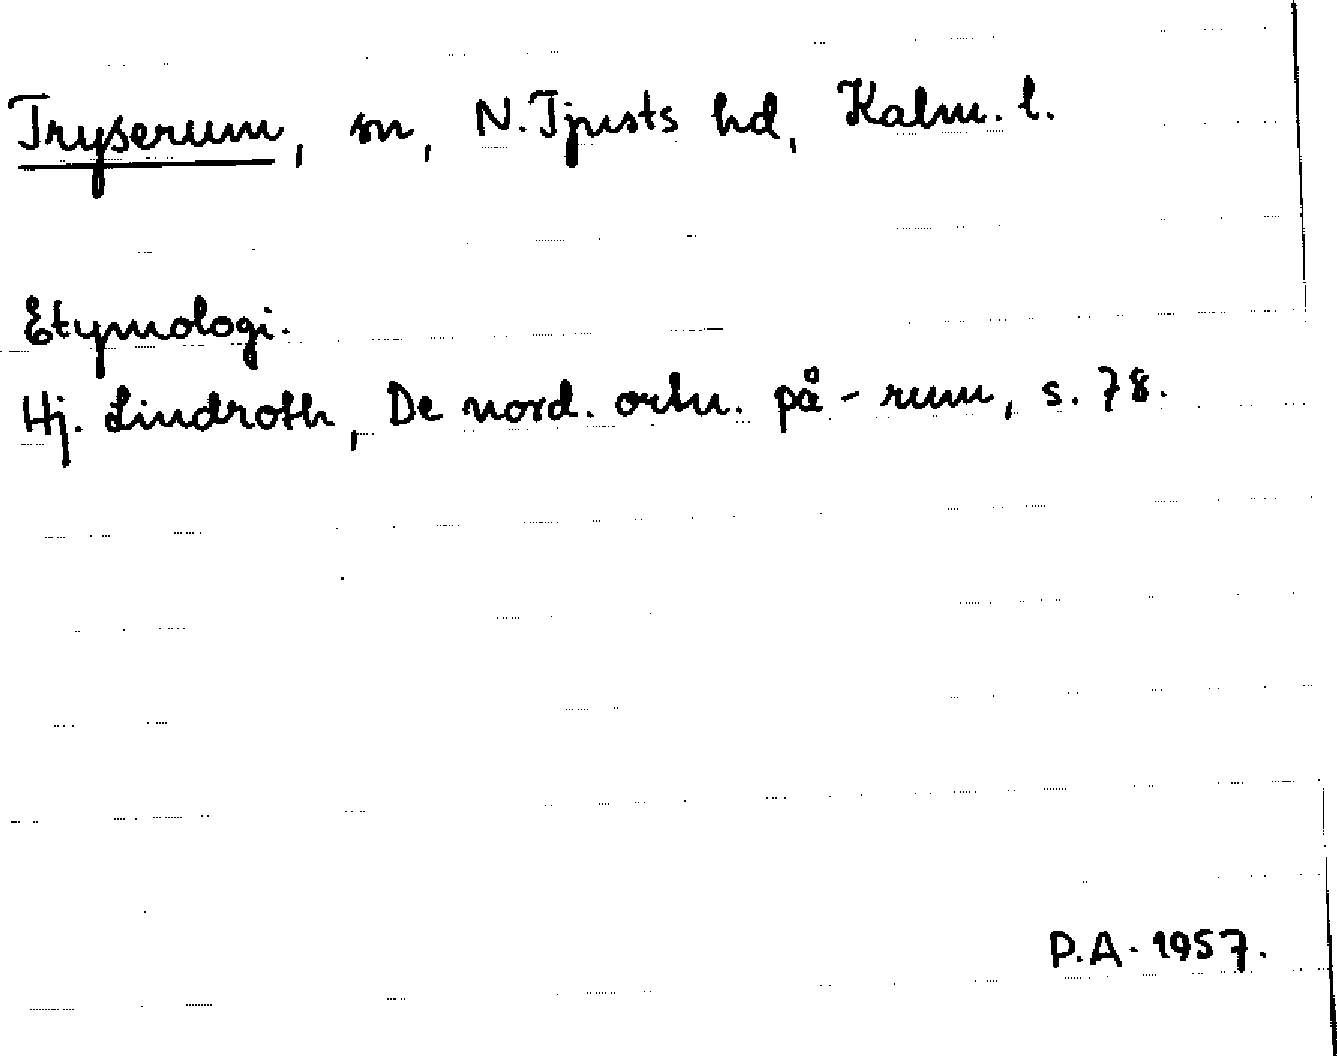 Tryserum, sn, N. Tjusts hd, Kalm. l.
Etymologi.
Hj. Lindroth, De nord. ortn. på -rum, s. 78.
P.A. 1957.